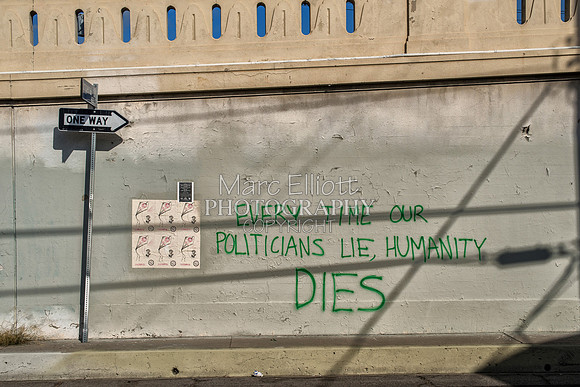 ONE WAY
Marc Elliott
PHOTOGRAPHY
COPYRIGHT
EVERY TIME OUR
POLITICIANS LIE, HUMANITY
DIES
3 3
3 3